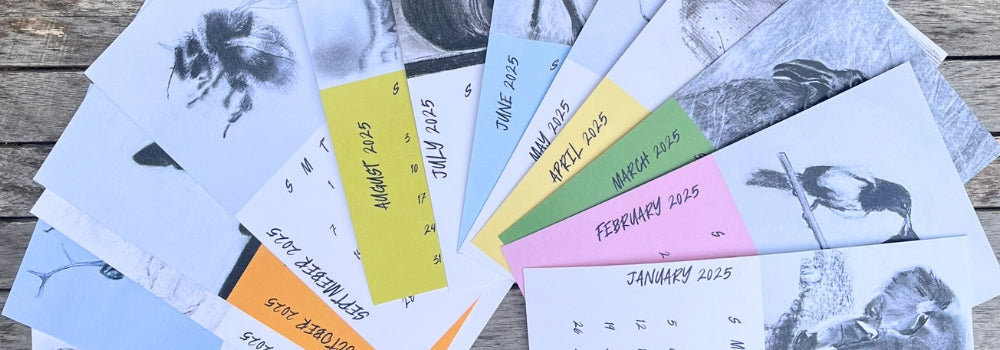 JANUARY 2025
S M
5
12
19
26
FEBRUARY 2025
S
2
MARCH 2025
APRIL 2025
MAY 2025
JUNE 2025
S
JULY 2025
S
AUGUST 2025
S
3
10
17
24
31
SEPTMEBER 2025
S M T
1
7
OCTOBER 2025
2025